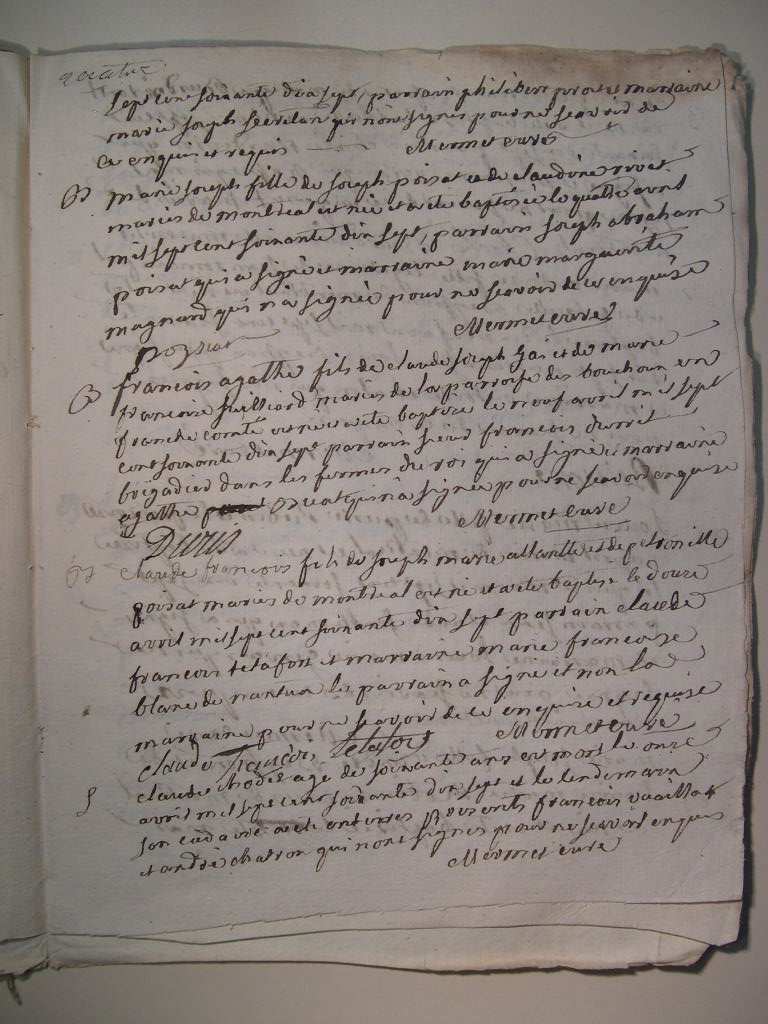 sept cent soixante dix sept, parrain philibert et marraine
marie joseph qui n'ont signes pour ne scavoir de
ce enquis et requis Mermet curé
B marie joseph fille de joseph poisat et de claudine rivet
mariés de montreal est née et a ete baptisée le quatre avril
mil sept cent soixante dix sept, parrain joseph abraham
poisat qui a signé et marraine marie marguerite
magnard qui n'a signée pour ne scavoir de ce enquise
Mermet curé
poizat
B francois agathe fils de claude joseph gai et de marie
francoise mariés de la parroise des bouchoux en
franche comté est né et a ete baptize le neuf avril mil sept
cent soixante dix sept parrain sieur francois
brigadier dans les fermes du roi qui a signé et marraine
agathe qui n'a signée pour ne scavoir enquise
Mermet curé
Duris
B claude francois fils de joseph marie et de petronille
poisat mariés de montreal est né et a ete baptisé le douze
avril mil sept cent soixante dix sept parrain claude
francois tetafort et marraine marie francoise
blanc de nantua le parrain a signé et non la
marraine pour ne scavoir de ce enquise et requise
claude françois Mermet curé
S claude agé de soixante ans est mort le onze
avril mil sept cent soixante dix sept et le lendemain
son cadavre a ete enterré presents francois
et andré chatron qui n'ont signés pour ne scavoir enquis
Mermet curé